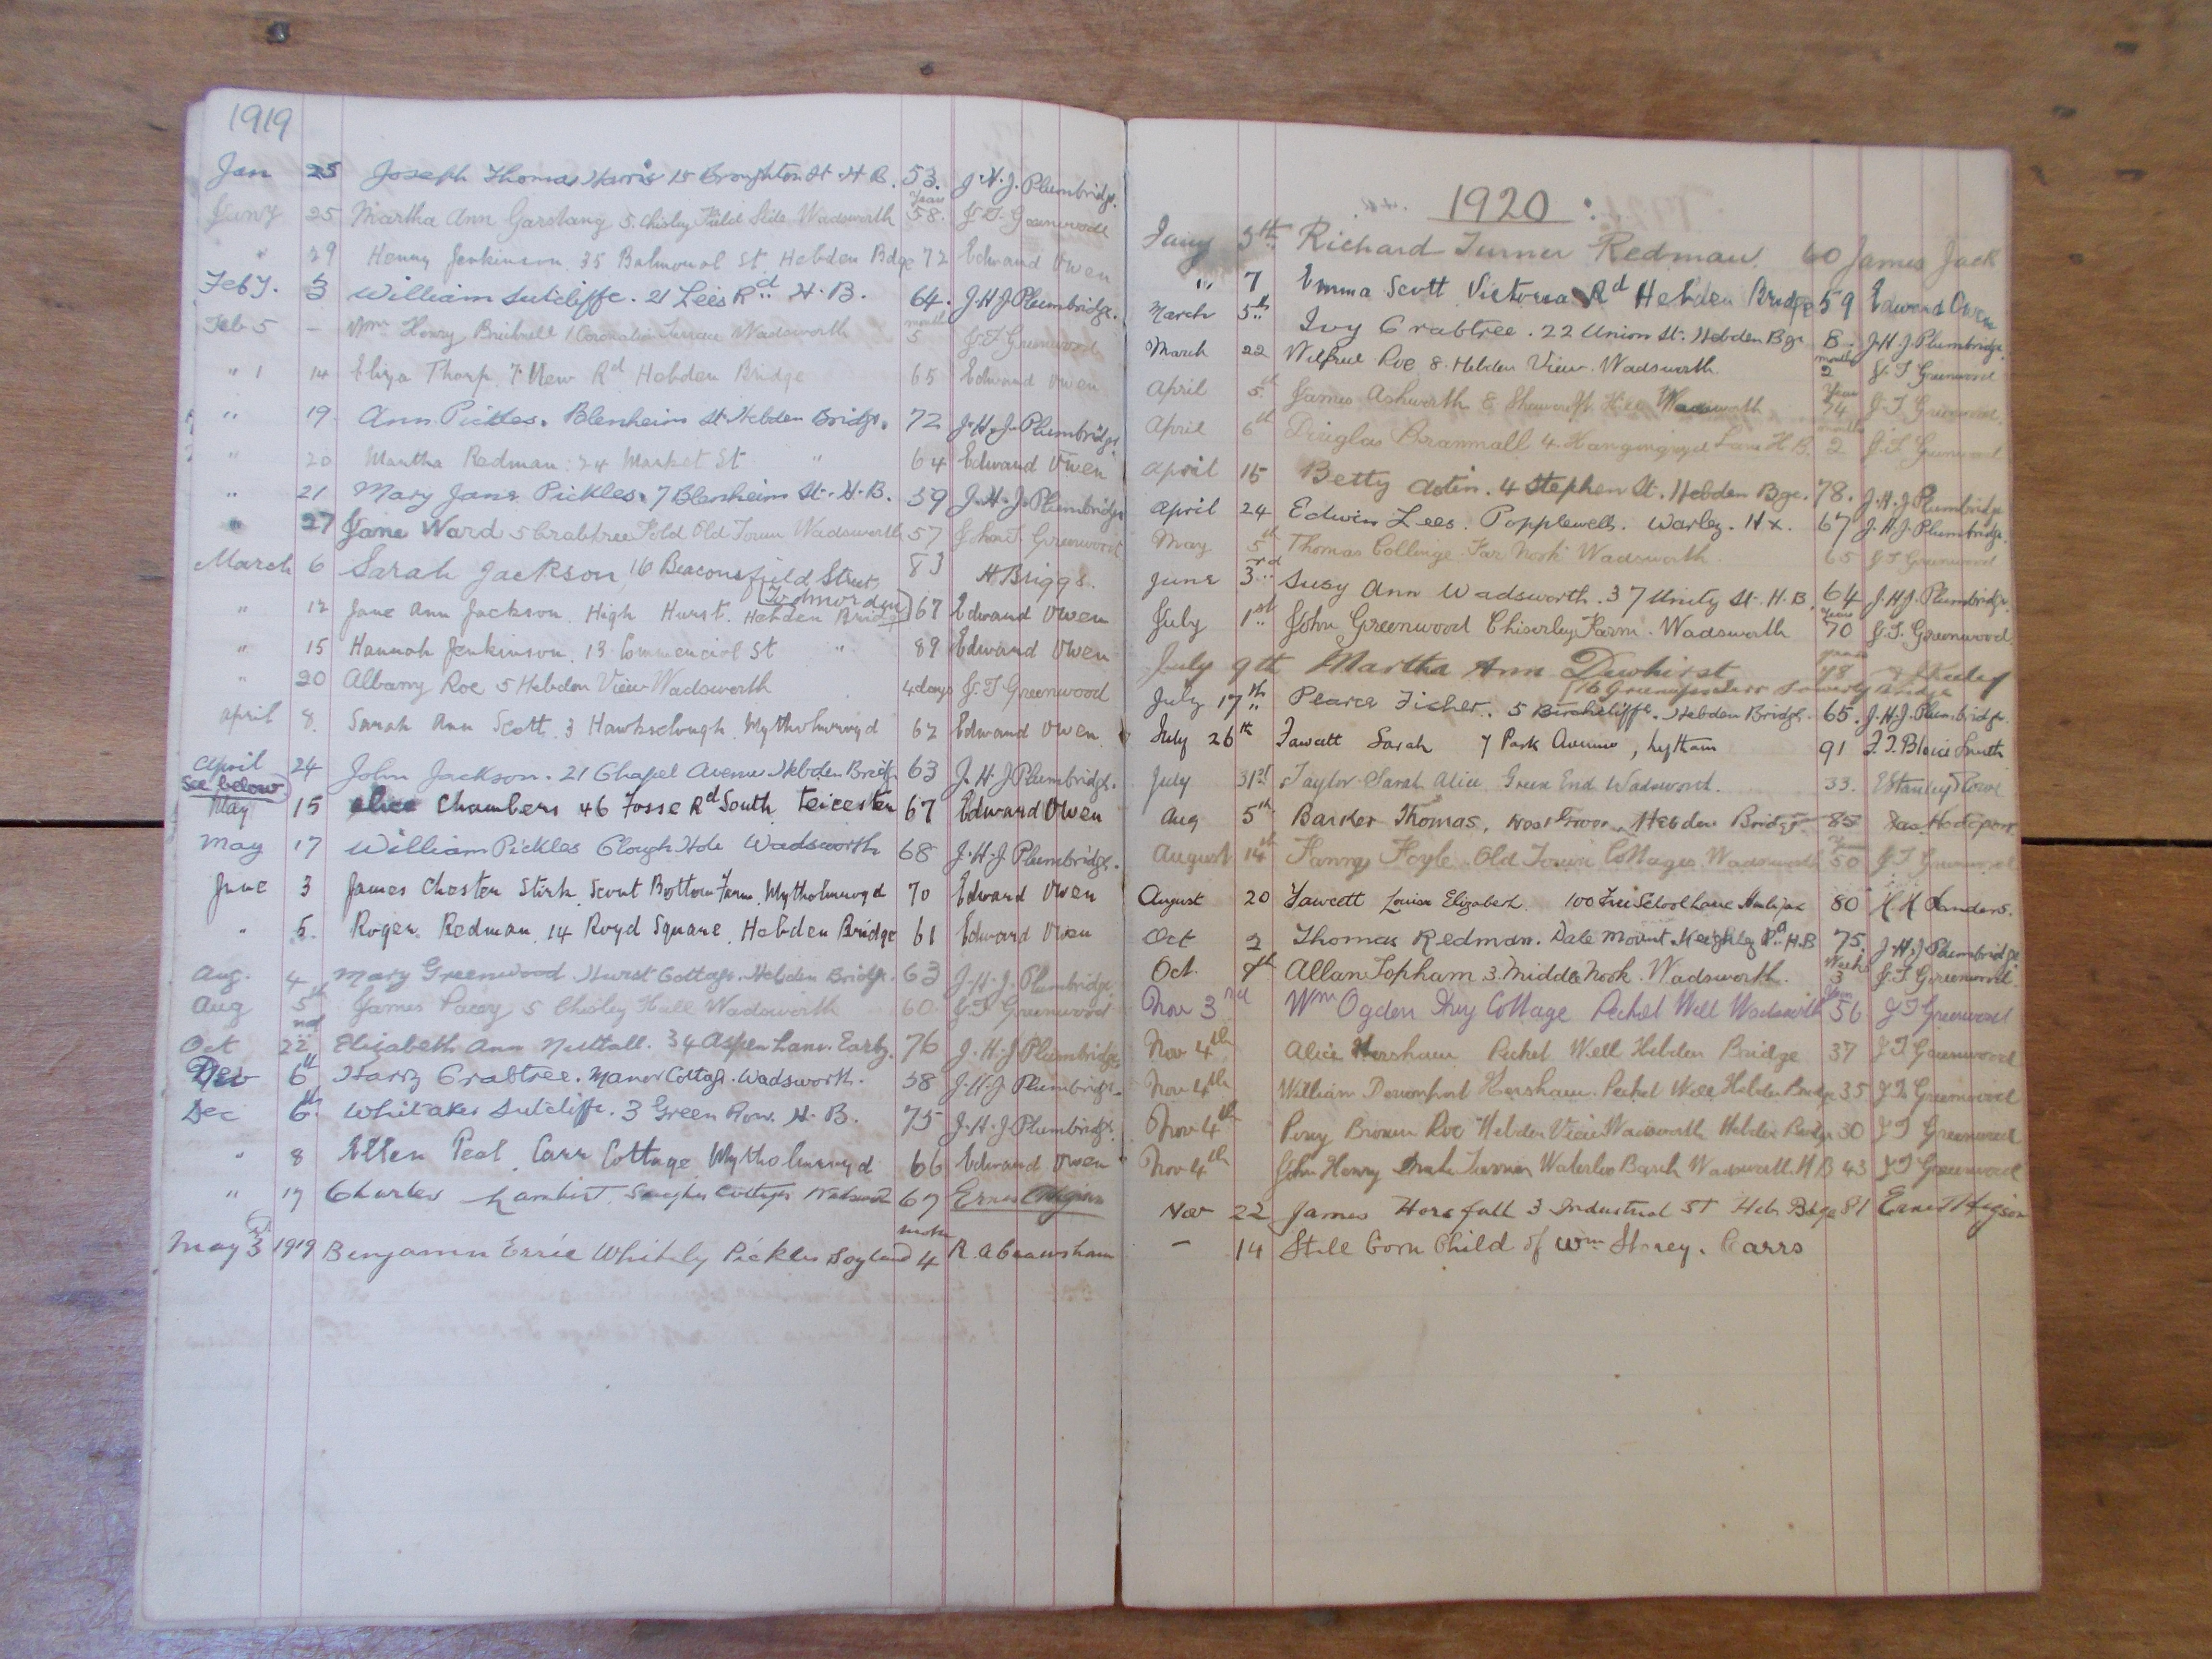 1919
Jan 25 Joseph Thomas Harris 15 Croughton St. H.B. 53. J.H.J. Plumbridge.
Jany 25 Martha Ann Garstang 5. Chisley Field Side Wadsworth Years 58. J.T. Greenwood
" 29 Henry Jenkinson. 35 Balmoral St. Hebden Bdge 72 Edward Owen
Feby. 3 William Sutcliffe. 21 Lees Rd. H.B. 64. J.H.J. Plumbridge.
Feb 5 - Wm Henry 1 Coronation Terrace Wadsworth months 5 J.T. Greenwood
" 14 Eliza Thorp. 7 New Rd Hebden Bridge 65 Edward Owen
" 19. Ann Pickles. Blenheim St. Hebden Bridge. 72 J.H.J. Plumbridge.
" 20 Martha Redman: 24 Market St " 64 Edward Owen
" 21 Mary Jane Pickles. 7 Blenheim St. H.B. 59 J.H.J. Plumbridge
" 27 Jane Ward 5 Crabtree Fold Old Town Wadsworth 57 John T. Greenwood
March 6 Sarah Jackson, 16 Beaconsfield Street, 83 H Briggs.
(Todmorden)
" 12 Jane Ann Jackson. High Hurst. Hebden Bridge 67 Edward Owen
" 15 Hannah Jenkinson. 13 Commercial St " 89 Edward Owen
" 20 Albany Roe 5 Hebden View Wadsworth 4 days J.T Greenwood
April 8. Sarah Ann Scott. 3 Hawksclough. Mytholmroyd 62 Edward Owen.
April 24 John Jackson. 21 Chapel Avenue. Hebden Bridge 63 J.H.J. Plumbridge.
See below
May 15 Alice Chambers 46 Fosse Rd South Leicester 67 Edward Owen
May 17 William Pickles Clough Hole Wadsworth 68 J.H.J. Plumbridge.
June 3 James Chester Stirk. Scout Bottom Farm. Mytholmroyd 70 Edward Owen
" 5. Roger Redman. 14 Royd Square. Hebden Bridge 61 Edward Owen
Aug. 4 Mary Greenwood. Hurst Cottage. Hebden Bridge. 63 J.H.J. Plumbridge
Aug 5th James Pacey 5 Chisley Hall Wadsworth 60 J.T Greenwood
Oct 22nd Elizabeth Ann Nuttall. 34 Aspen Lane. Earby. 76 J.H.J. Plumbridge
Dec 6th Harry Crabtree. Manor Cottage. Wadsworth. 58 J.H.J Plumbridge.
Dec 6th. Whitaker Sutcliffe. 3 Green Row. H.B. 75 J.H.J. Plumbridge.
" 8 Ellen Peel. Carr Cottage Mytholmroyd 66 Edward Owen
" 17 Charles Lambert. Cottages 67 Ernest Higson
May 3 1919 Benjamin Whitely Pickles Soyland months 4
1920.
Jany 3th Richard Turner Redman. 60 James Jack
" 7 Emma Scott Victoria Rd Hebden Bridge 59 Edward Owen
March 5th Ivy Crabtree. 22 Union St. Hebden Bge 8 months J.H.J. Plumbridge.
March 22 Wilfred Roe 8. Hebden View. Wadsworth. 2 J.T Greenwood
April 5th James Ashworth 8 Hill Wadsworth Years 74 J.T Greenwood
April 6th Douglas Brammall 4 Hangingroyd Lane H.B. months 2 J.T Greenwood
April 15 Betty Astin. 4 Stephen St. Hebden Bge. 78. J.H.J Plumbridge
April 24 Edwin Lees. Popplewells. Warley. Hx. 67 J.H.J. Plumbridge.
May 5th Thomas Collinge Far Nook Wadsworth 65 J T Greenwood
June 3rd Susy Ann Wadsworth. 37 Unity St. H.B. 64 J.H.J. Plumbridge.
July 1st John Greenwood Chiserley Farm. Wadsworth Years 70 J.T. Greenwood.
July 9th Martha Ann Dewhirst years 48
(16 Sowerby Bridge
July 17th Pearce Fisher. 5 Birchcliffe. Hebden Bridge. 65. J.H.J. Plumbridge.
July 26th Fawcett Sarah 7 Park Avenue, Lytham 91
July 31st Taylor Sarah Alice Green End Wadsworth. 33. E Stanley Rowe
Aug 5th Barker Thomas, Hebden Bridge 85
August 14th Fanny Foyle. Old Town Cottages. Wadsworth Years 50 J.T Greenwood
August 20 Fawcett Louisa Elizabeth. 100 Free School Lane Halifax 80
Oct 2 Thomas Redman. Dale Mount. Keighley Rd. H.B 75. J.H.J Plumbridge
Oct. 9th Allan Topham 3. Middle Nook. Wadsworth. Weeks 3 J.T Greenwood.
Nov 3rd Wm Ogden Cottage Pecket Well Wadsworth Years 56 J T Greenwood
Nov 4th Alice Hersham Pecket Well Hebden Bridge 37 J T Greenwood
Nov 4th William Davenport Hersham. Pecket Well Hebden Bridge 35 J T Greenwood
Nov 4th Percy Brown Roe Hebden View Wadsworth Hebden Bridge 30 J T Greenwood
Nov 4th John Henry Turner Wadsworth. H B 43 J T Greenwood
Nov 22 James Horsfall 3 Industrial St Heb Bdge 81 Ernest Higson
- 14 Still born Child of Wm Storey. Carrs